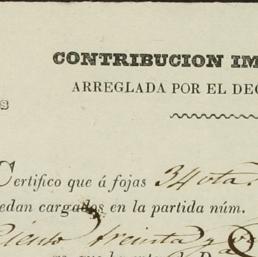 CONTRIBUCION IM
ARREGLADA POR EL DEC
s
Certifico que á fojas 34 vta.
edan cargados en la partida núm.
Ciento treinta y